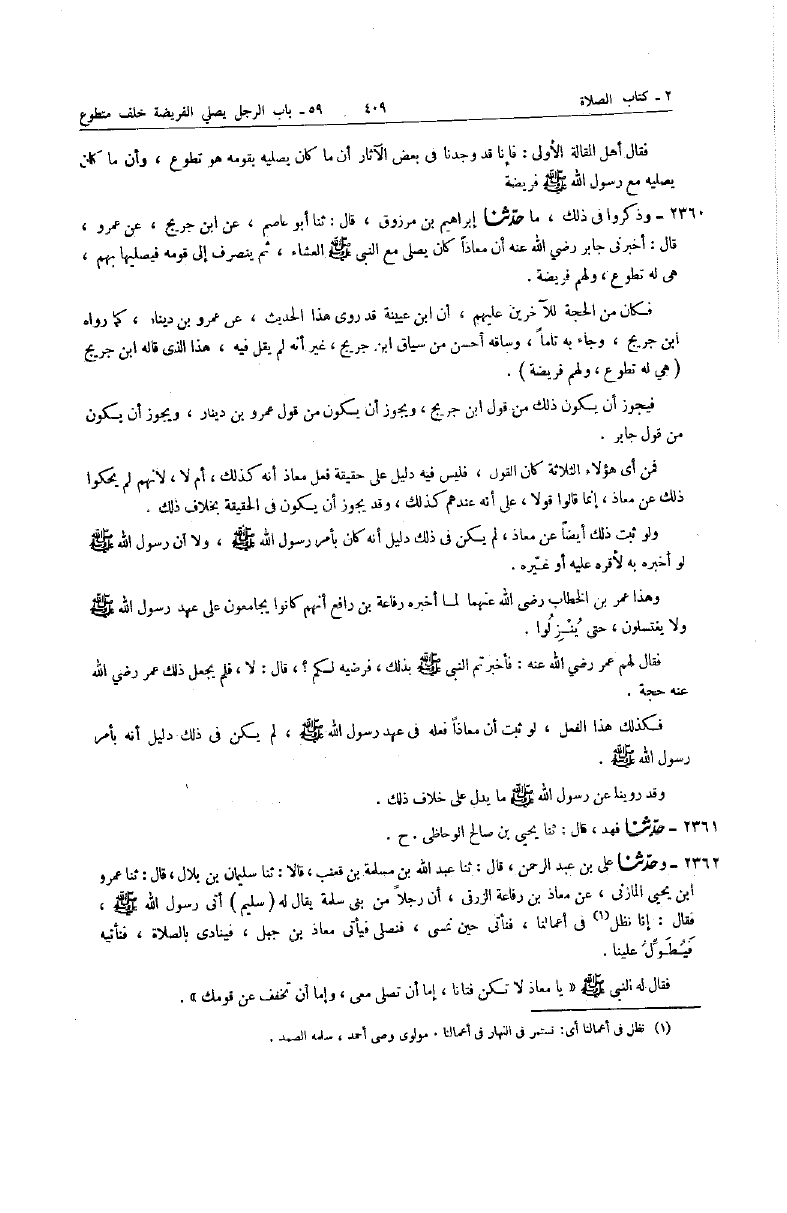 ٢ ـ كتاب الصلاة ٤٠٩ ٥٩ ـ باب الرجل يصلي الفريضة خلف متطوع
فقال أهل المقالة الأولى : فإنا قد وجدنا فى بعض الآثار أن ما كان يصليه بقومه هو تطوع ، وأن ما كان
يصليه مع رسول الله ﷺ فريضة
٢٣٦٠ ـ وذكروا فى ذلك ، ما حدّثنا إبراهيم بن مرزوق ، قال : ثنا أبو عاصم ، عن ابن جريج ، عن عمرو ،
قال : أخبرنى جابر رضي الله عنه أن معاذاً كان يصلى مع النبي ﷺ العشاء ، ثم ينصرف إلى قومه فيصليها بهم ،
هى له تطوع ، ولهم فريضة .
فكان من الحجة للآخرين عليهم ، أن ابن عيينة قد روى هذا الحديث ، عن عمرو بن دينار ، كما رواه
ابن جريج ، وجاء به تاماً ، وساقه أحسن من سياق ابن جريج ، غير أنه لم يقل فيه ، هذا الذى قاله ابن جريج
( هي له تطوع ، ولهم فريضة ) .
فيجوز أن يكون ذلك من قول ابن جريج ، ويجوز أن يكون من قول عمرو بن دينار ، ويجوز أن يكون
من قول جابر .
فمن أى هؤلاء الثلاثة كان القول ، فليس فيه دليل على حقيقة فعل معاذ أنه كذلك ، أم لا ، لأنهم لم يحكوا
ذلك عن معاذ ، إنما قالوا قولا ، على أنه عندهم كذلك ، وقد يجوز أن يكون فى الحقيقة بخلاف ذلك .
ولو ثبت ذلك أيضاً عن معاذ ، لم يكن فى ذلك دليل أنه كان بأمر رسول الله ﷺ ، ولا أن رسول الله ﷺ
لو أخبره به لأقره عليه أو غيّره .
وهذا عمر بن الخطاب رضي الله عنهما لما أخبره رفاعة بن رافع أنهم كانوا يجامعون على عهد رسول الله ﷺ
ولا يغتسلون ، حتى يُنْزِلُوا .
فقال لهم عمر رضي الله عنه : فأخبرتم النبي ﷺ بذلك ، فرضيه لكم ؟ ، قال : لا ، فلم يجعل ذلك عمر رضي الله
عنه حجة .
فكذلك هذا الفعل ، لو ثبت أن معاذاً فعله فى عهد رسول الله ﷺ ، لم يكن فى ذلك دليل أنه بأمر
رسول الله ﷺ .
وقد روينا عن رسول الله ﷺ ما يدل على خلاف ذلك .
٢٣٦١ ـ حدّثنا فهد ، قال : ثنا يحيى بن صالح الوحاظى . ح .
٢٣٦٢ ـ وحدّثنا على بن عبد الرحمن ، قال : ثنا عبد الله بن مسلمة بن قعنب ، قالا : ثنا سليمان بن بلال ، قال : ثنا عمرو
ابن يحيى المازنى ، عن معاذ بن رفاعة الزرقى ، أن رجلاً من بنى سلمة يقال له ( سليم ) أتى رسول الله ﷺ ،
فقال : إنا نظل(١) فى أعمالنا ، فنأتى حين نمسى ، فنصلى فيأتى معاذ بن جبل ، فينادى بالصلاة ، فنأتيه
فَيُطَوِّلُ علينا .
فقال له النبي ﷺ « يا معاذ لا تكن فتانا ، إما أن تصلى معى ، وإما أن تخفف عن قومك » .
(١) نظل فى أعمالنا أى: نستمر فى النهار فى أعمالنا . مولوى وصى أحمد ، سلمه الصمد .